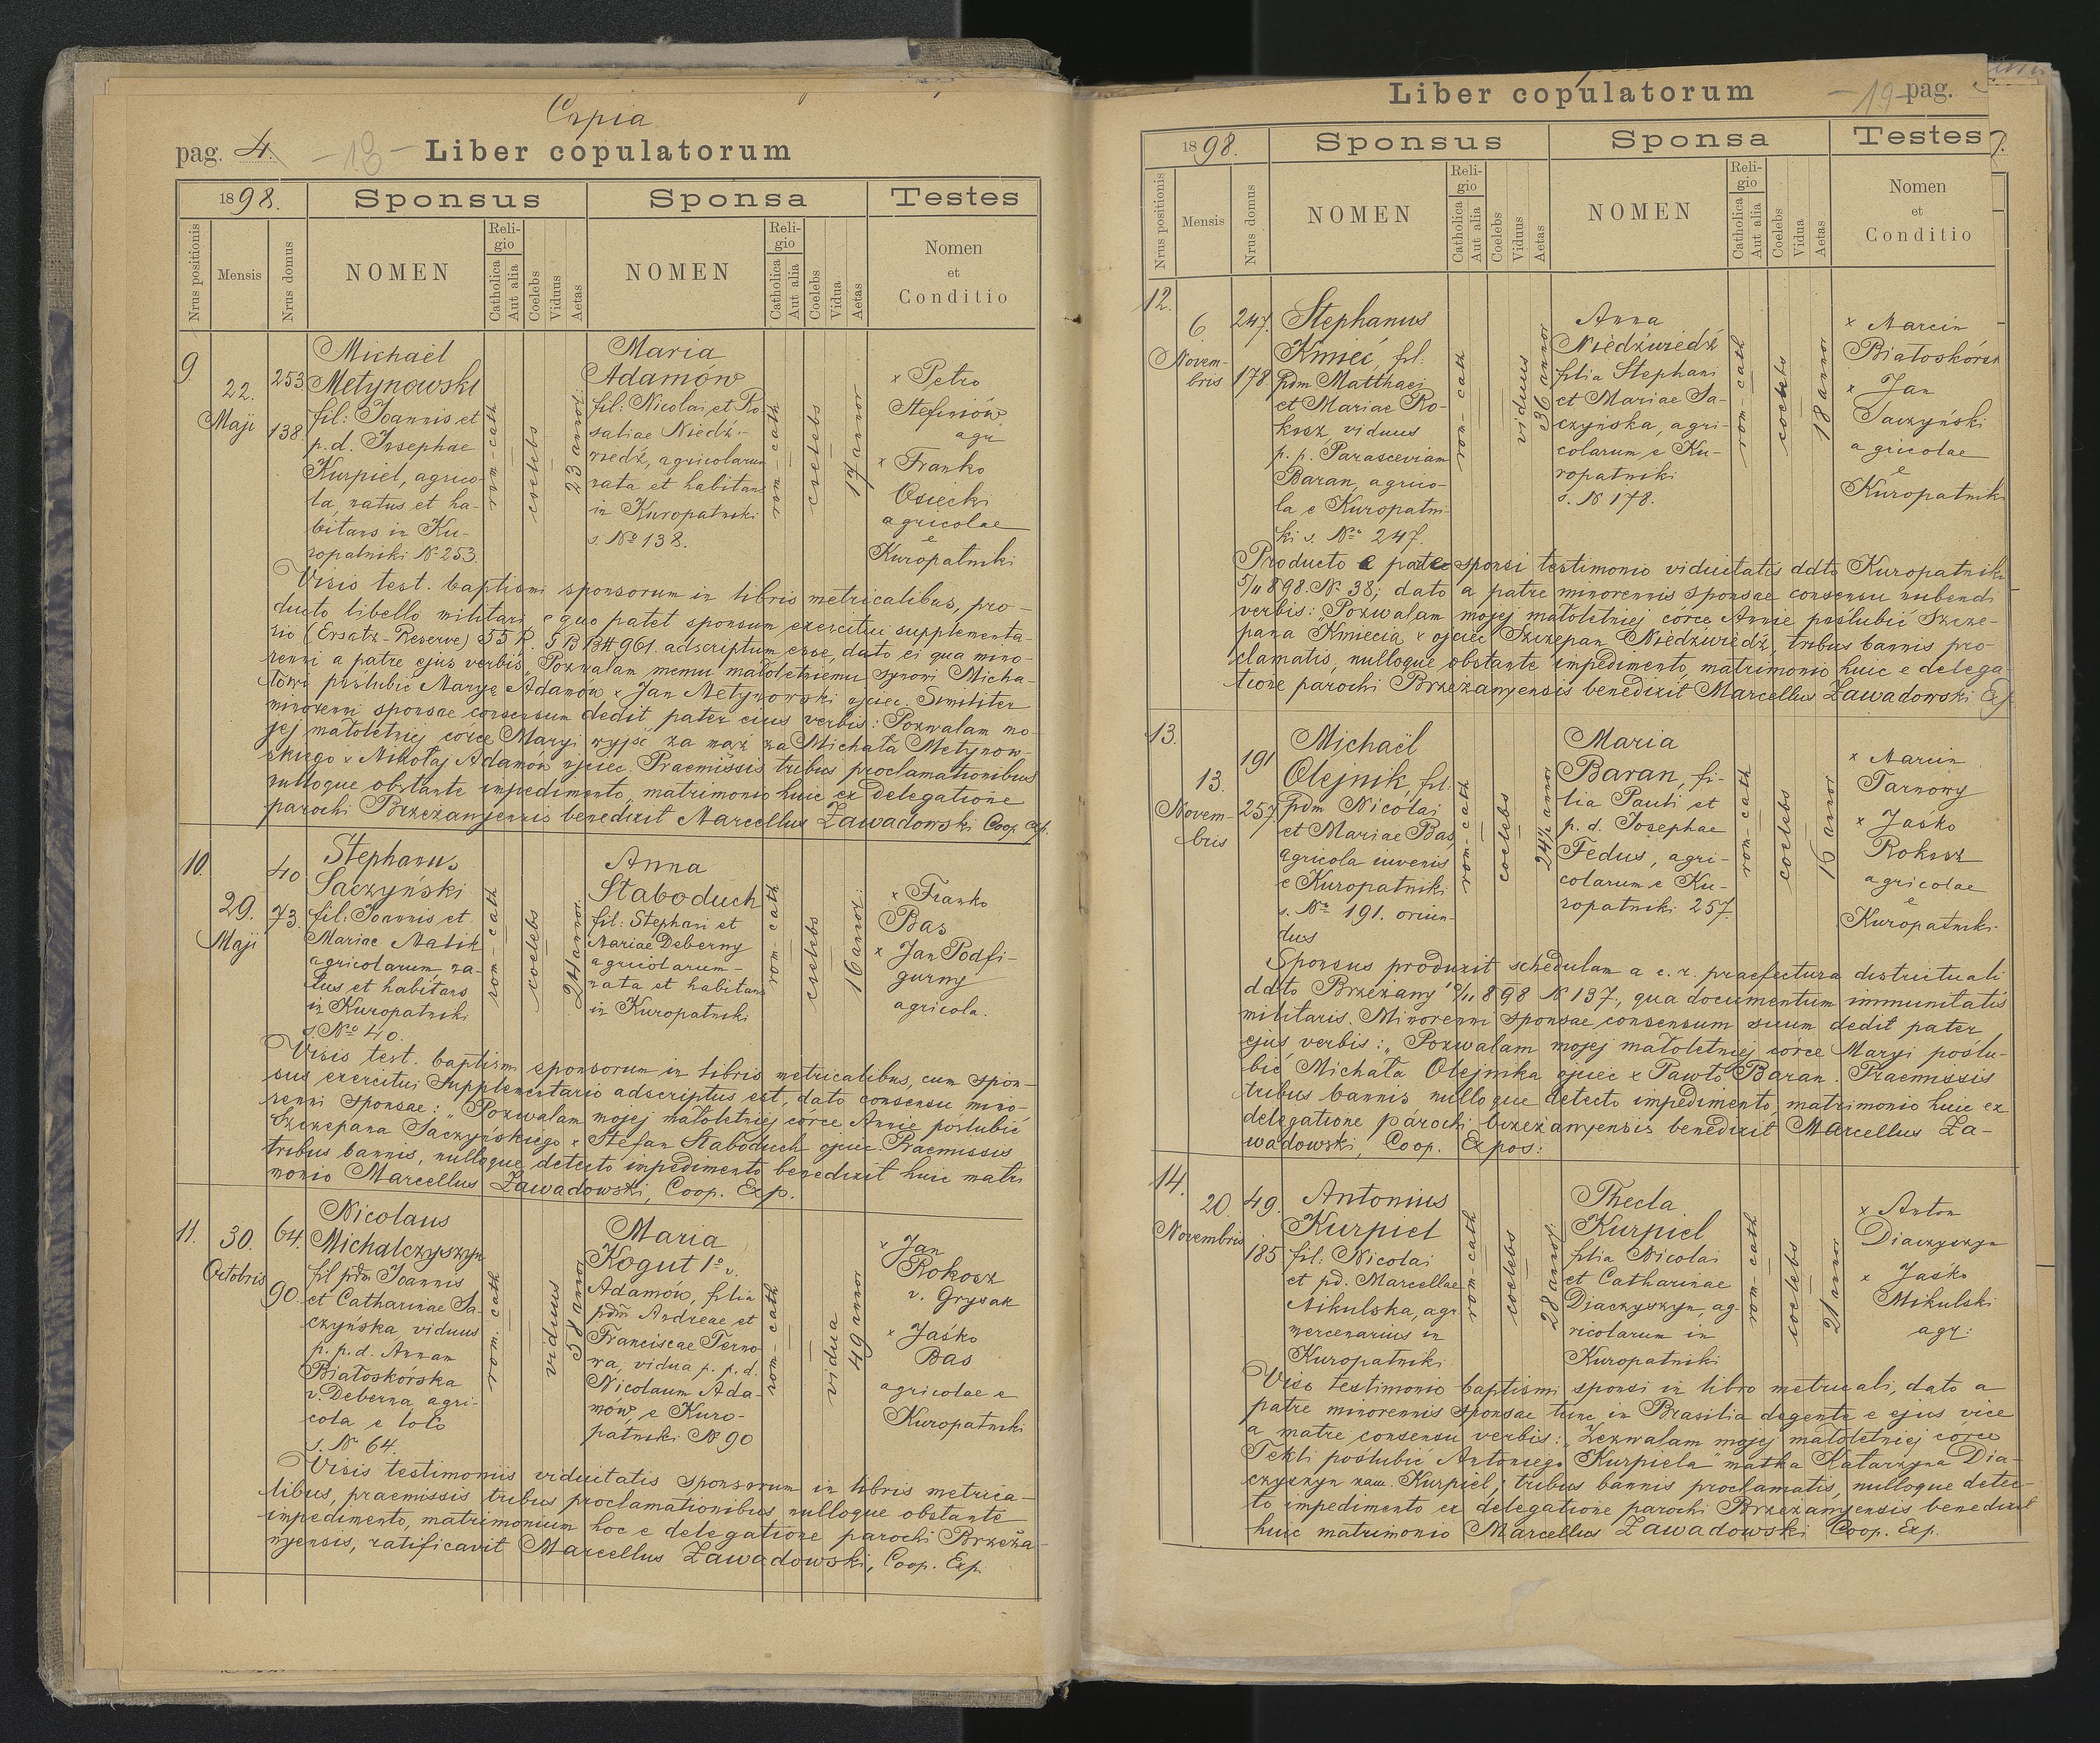 Copia
pag. 4.
- 18 -
Liber copulatorum
1898.
Sponsus
Sponsa
Testes
Nrus positionis
Mensis
Nrus domus
NOMEN
Religio
Catholica
Aut alia
Coelebs
Viduus
Aetas
NOMEN
Religio
Catholica
Aut alia
Coelebs
Vidua
Aetas
Nomen
et
Conditio
9.
22.
Maji
253
138.
Michaël
Metynowski
fil: Joannis et
p. d. Josephae
Kurpiel, agrico-
la, natus et ha-
bitans in Ku-
ropatniki N 253.
rom-cath
coelebs
23 annor.
Maria
Adamów
fil: Nicolai et Ro-
saliae Niedź-
wiedź, agricolarum
nata et habitans
in Kuropatniki
s. No 138.
rom-cath
coelebs
17 annor
x Petro
Stefiniów
agr
x Franko
Osiecki
agricolae
e
Kuropatniki
Visis test. baptismi sponsorum in libris metricalibus, pro-
ducto libello militari e quo patet sponsum exercitui supplementa-
rio (Ersatz-Reserve) 55 R. adscriptum esse, dato ei qua mino-
renni a patre ejus verbis „Pozwalam memu małoletniemu synowi Micha-
łowi poślubić Maryę Adamów x Jan Metynowski ojciec. Similiter
minorenni sponsae consensum dedit pater eius verbis: Pozwalam mo-
jej małoletniej córce Maryi wyjść za mąż za Michała Metynow-
skiego x Mikołaj Adamów ojciec. Praemissis tribus proclamationibus
nulloque obstante impedimento, matrimonio huic ex delegatione
parochi Brzeżanyensis benedixit Marcellus Zawadowski Coop. Exp.
10.
29.
Maji
40
73.
Stephanus
Saczyński
fil: Joannis et
Mariae Malik
agricolarum, na-
tus et habitans
in Kuropatniki
s. No 40.
rom-cath
coelebs
24 annor.
Anna
Słaboduch
fil: Stephani et
Mariae Deberny
agricolarum-
nata et habitans
in Kuropatniki
rom-cath
coelebs
16 annor.
x Franko
Bas
x Jan Podfi-
gurny
agricola.
Visis test. baptismi sponsorum in libris metricalibus, cum spon-
sus exercitui supplementario adscriptus est, dato consensu mino-
renni sponsae: „Pozwalam mojej małoletniej córce Annie poślubić
Szczepana Saczyńskiego x Stefan Słaboduch ojciec. Praemissis
tribus bannis, nulloque detecto impedimento benedixit huic matri
monio Marcellus Zawadowski, Coop. Exp.
11.
30.
Octobris
64.
90.
Nicolaus
Michalczyszyn
fil pdm Joannis
et Catharinae Sa-
czyńska, viduus
p. p. d. Annam
Białoskórska
v. Deberna, agri-
cola e loco
s. N 64.
rom. cath
viduus
58 annor
Maria
Kogut 1o v.
Adamów, filia
pdm Andreae et
Franciscae Terno
wa, vidua p. p. d.
Nicolaum Ada-
mów, e Kuro-
patniki No 90
rom-cath
vidua
49 annor
x Jan
Rokosz
v. Grysak
x Jaśko
Bas
agricolae e
Kuropatniki
Visis testimoniis viduitatis sponsorum in libris metrica-
libus, praemissis tribus proclamationibus nulloque obstante
impedimento, matrimonium hoc e delegatione parochi Brzeża-
nyensis, ratificavit Marcellus Zawadowski, Coop. Exp.
Liber copulatorum
- 19 -
pag.
1898.
Sponsus
Sponsa
Testes
Nrus positionis
Mensis
Nrus domus
NOMEN
Religio
Catholica
Aut alia
Coelebs
Viduus
Aetas
NOMEN
Religio
Catholica
Aut alia
Coelebs
Vidua
Aetas
Nomen
et
Conditio
12.
6
Novem-
bris
247.
178
Stephanus
Kmieć, fil.
pdm Matthaei
et Mariae Ro-
kosz, viduus
p. p. Parasceviam
Baran, agrico-
la e Kuropatni-
ki s. No 247.
rom-cath
viduus
36 annor
Anna
Niedźwiedź
filia Stephani
et Mariae Sa-
czyńska, agri-
colarum e Ku-
ropatniki
s. N 178.
rom-cath
coelebs
18 annor
x Marcin
Białoskórski
x Jan
Saczyński
agricolae
e
Kuropatniki
Producto a sponsi testimonio viduitatis ddto Kuropatniki
5/11 898 N. 38; dato a patre minorennis sponsae consensu nubendi
verbis: „Pozwalam mojej małoletniej córce Annie poślubić Szcze-
pana Kmiecia x ojciec Szczepan Niedźwiedź, tribus bannis pro-
clamatis, nulloque obstante impedimento, matrimonio huic e delega-
tione parochi Brzeżanyensis benedixit Marcellus Zawadowski Exp.
13.
13.
Novem-
bris
191
257.
Michaël
Olejnik, fil.
pdm Nicolai
et Mariae Bas,
agricola iuvenis
e Kuropatniki
s. No 191. oriun-
dus
rom-cath
coelebs
24½ annor
Maria
Baran, fi-
lia Pauli et
p. d. Josephae
Fedus, agri-
colarum e Ku-
ropatniki 257.
rom-cath
coelebs
16 annor
x Marcin
Tarnowy
x Jaśko
Rokosz
agricolae
e
Kuropatniki
Sponsus produxit schedulam a c. r. praefectura districtuali
ddto Brzeżany /11 898 N 137., qua documentum immunitatis
militaris. Minorenni sponsae consensum suum dedit pater
ejus verbis: „Pozwalam mojej małoletniej córce Maryi poślu-
bić Michała Olejnika ojciec x Pawło Baran. Praemissis
tribus bannis nulloque detecto impedimento, matrimonio huic ex
delegatione parochi brzeżanyensis benedixit Marcellus Za-
wadowski, Coop. Expos:
14.
20.
Novembris
49.
185
Antonius
Kurpiel
fil: Nicolai
et pd. Marcellae
Mikulska, agr.
mercenarius in
Kuropatniki
rom-cath
coelebs
28 annor.
Thecla
Kurpiel
filia Nicolai
et Catharinae
Diaczyszyn, ag-
ricolarum in
Kuropatniki
rom-cath
coelebs
21 annor
x Anton
Diaczyszyn
x Jaśko
Mikulski
agr:
Viso testimonio baptismi sponsi in libro metricali, dato a
patre minorennis sponsae tunc in Brasilia degente e ejus vice
a matre consensu verbis: „Zezwalam mojej małoletniej córce
Tekli poślubić Antoniego Kurpiela" matka Katarzyna Dia-
czyszyn zam. Kurpiel; tribus bannis proclamatis, nulloque detec-
to impedimento ex delegatione parochi Brzeżanyensis benedixit
huic matrimonio Marcellus Zawadowski Coop. Exp.